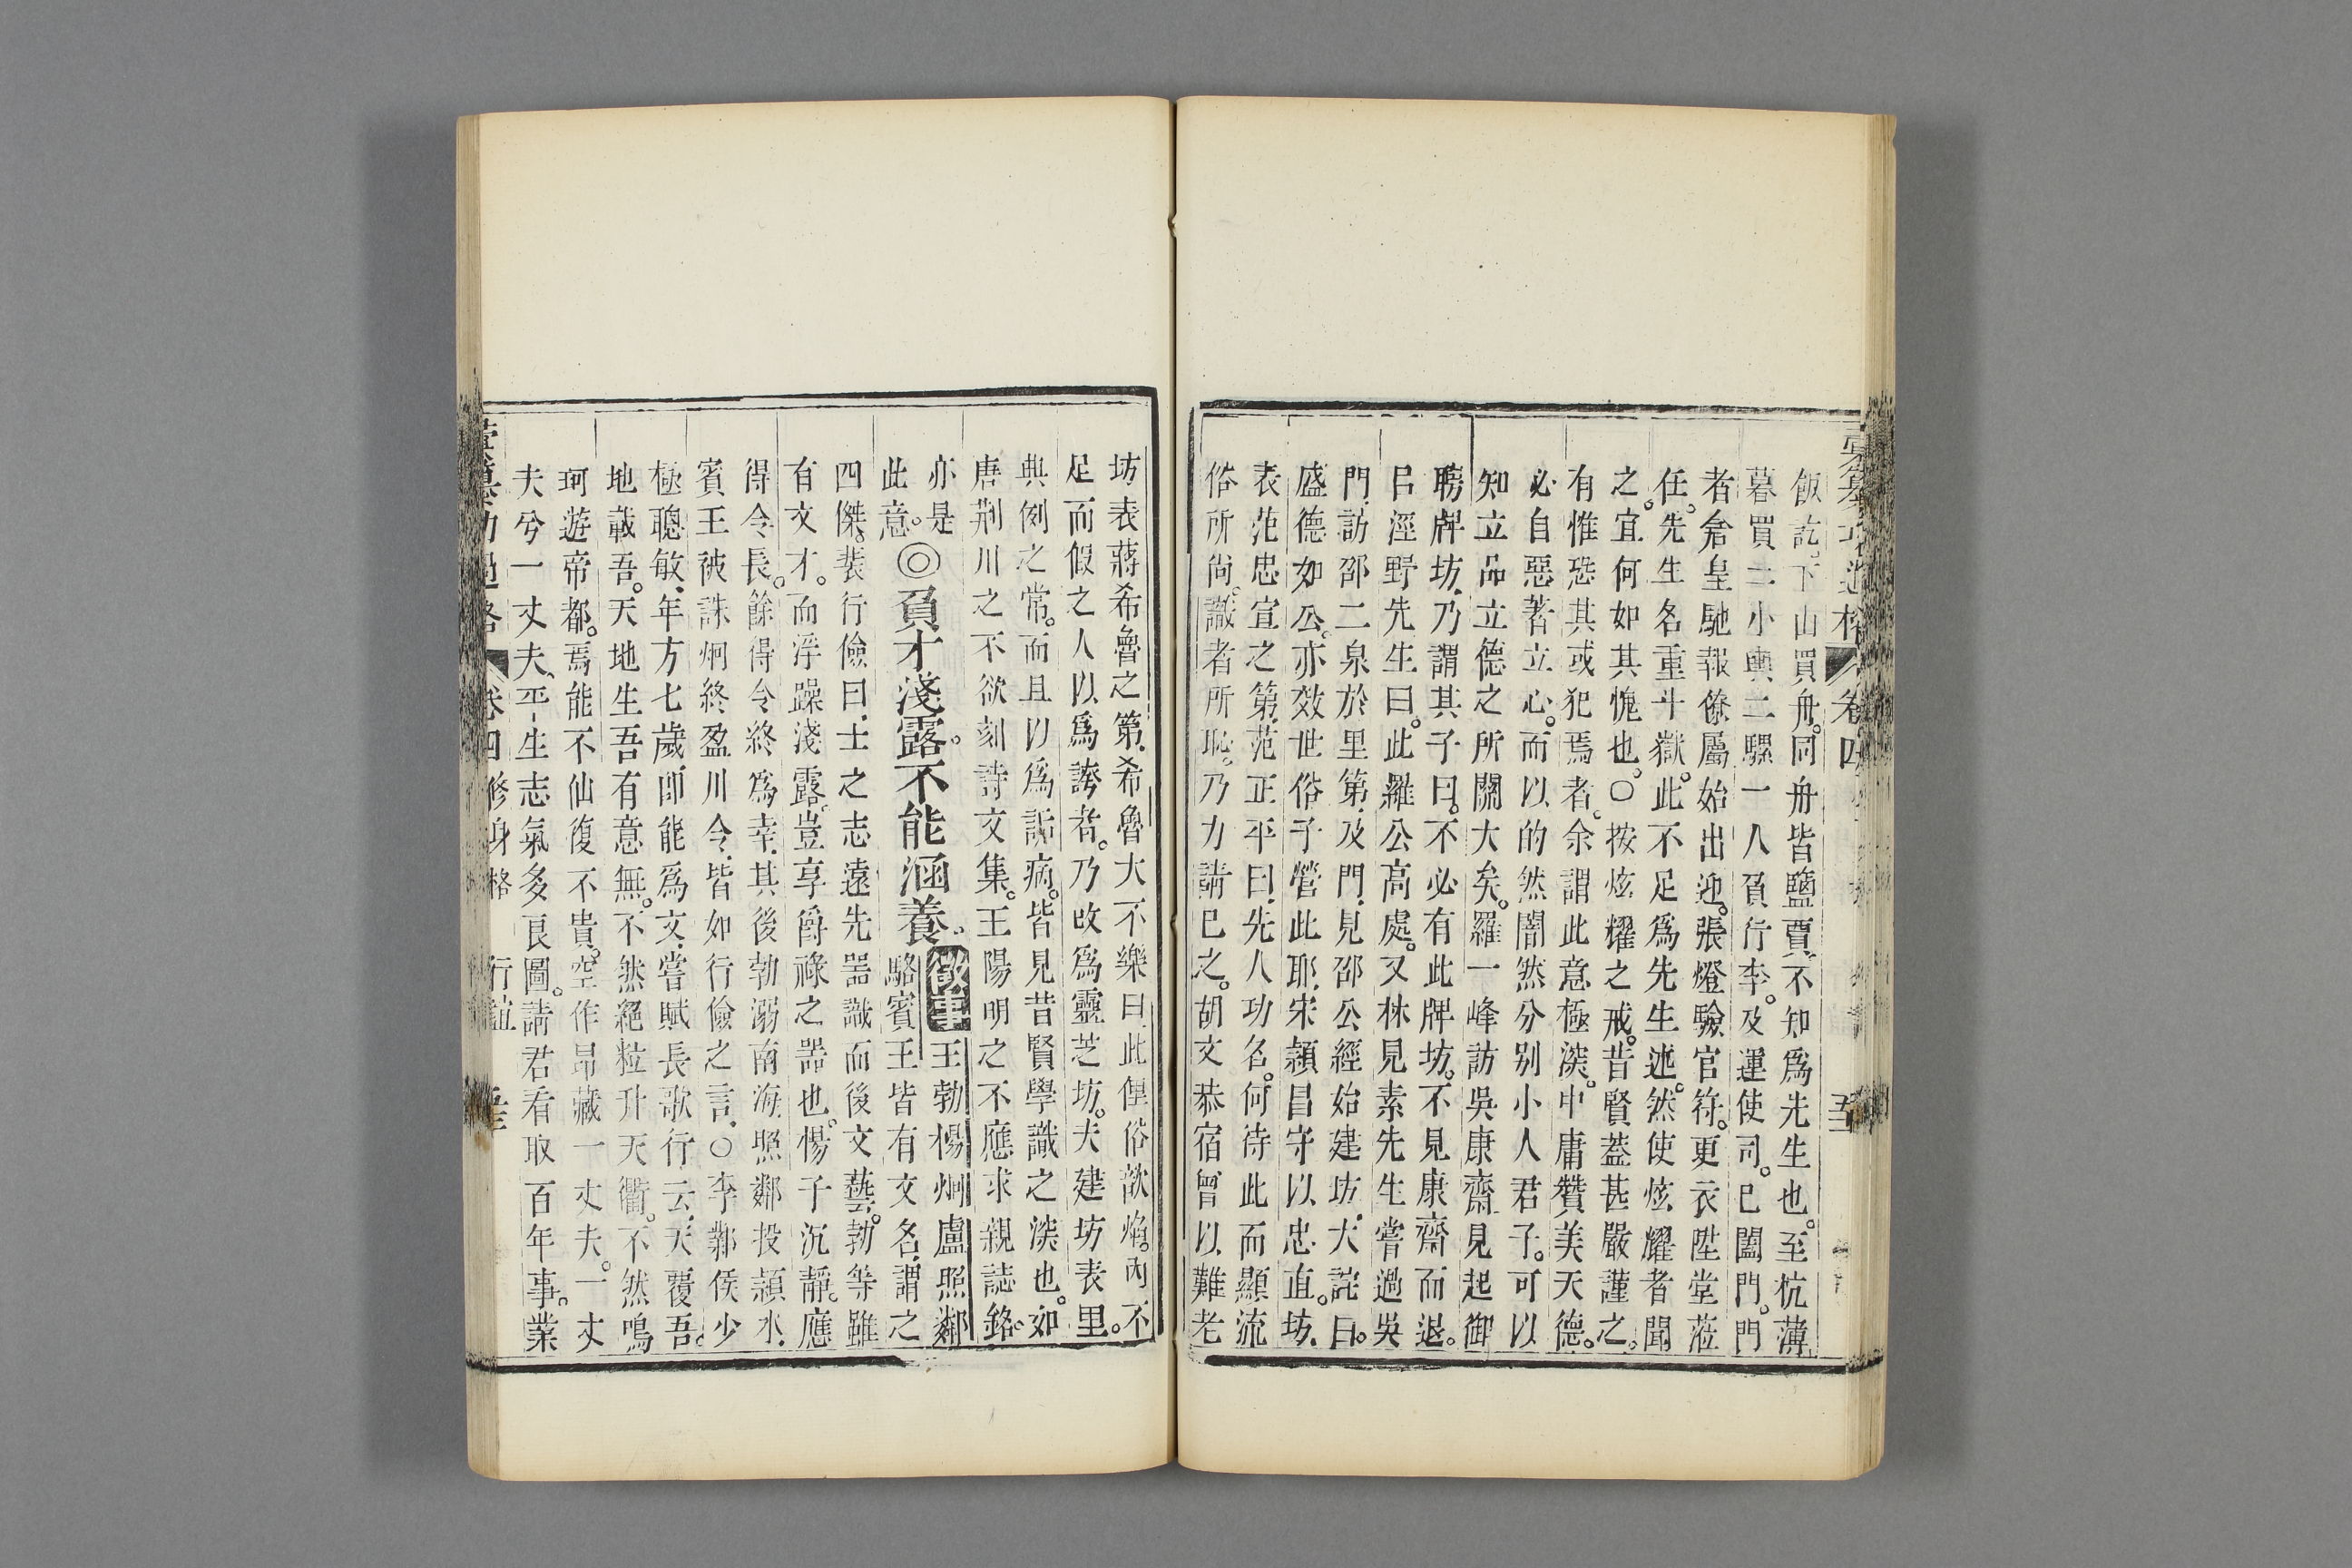 飯訖。下山買舟。同舟皆鹽賈、不知爲先生也。至杭薄
暮買二小輿二騾一人負行李。及運使司。已闔門。門
者倉皇馳報僚屬始出迎。張燈驗官符。更衣陞堂蒞
任。先生名重斗嶽。此不足爲先生述。然使炫耀者聞
之。宜何如其愧也。○按炫耀之戒。昔賢葢甚嚴謹之。
有惟恐其或犯焉者。余謂此意極深。中庸贊美天德。
必自惡著立心。而以的然闇然分别小人君子。可以
知立品立德之所關大矣。羅一峰訪吳康齋見起御
聘牌坊、乃謂其子曰。不必有此牌坊。不見康齋而退。
呂涇野先生曰。此羅公高處。又林見素先生嘗過吳
門、訪邵二泉於里第、及門、見邵公經始建坊、大詫曰。
盛德如公。亦效世俗子營此耶、宋頴昌守以忠直。坊、
表范忠宣之第、范正平曰、先人功名。何待此而顯流
俗所尚。識者所恥。乃力請已之。胡文恭宿曾以難老
坊表蔣希魯之第、希魯大不樂曰、此俚俗歆焰。內不
足而假之人以爲誇者。乃改爲靈芝坊。夫建坊表里。
典例之常。而且以爲詬病。皆見昔賢學識之深也。如
唐荆川之不欲刻詩文集。王陽明之不應求親誌銘。
亦是
此意。◎負才淺露。不能涵養。徵事 王勃楊炯盧照鄰
駱賓王皆有文名、謂之
四傑。裴行儉曰、士之志遠先器識而後文藝。勃等雖
有文才。而浮躁淺露。豈享爵祿之器也。楊子沉靜。應
得令長。餘得令終爲幸、其後勃溺南海、照鄰投頴水、
賓王被誅炯終盈川令、皆如行儉之言、○李鄴侯少
極聰敏、年方七歲、卽能爲文、嘗賦長歌行云、天覆吾。
地載吾。天地生吾有意無。不然絕粒升天衢。不然鳴
珂遊帝都。焉能不仙復不貴。空作昂藏一丈夫。一丈
夫兮一丈夫、平生志氣多良圖。請君看取百年事。業
卷四 修身格 行誼